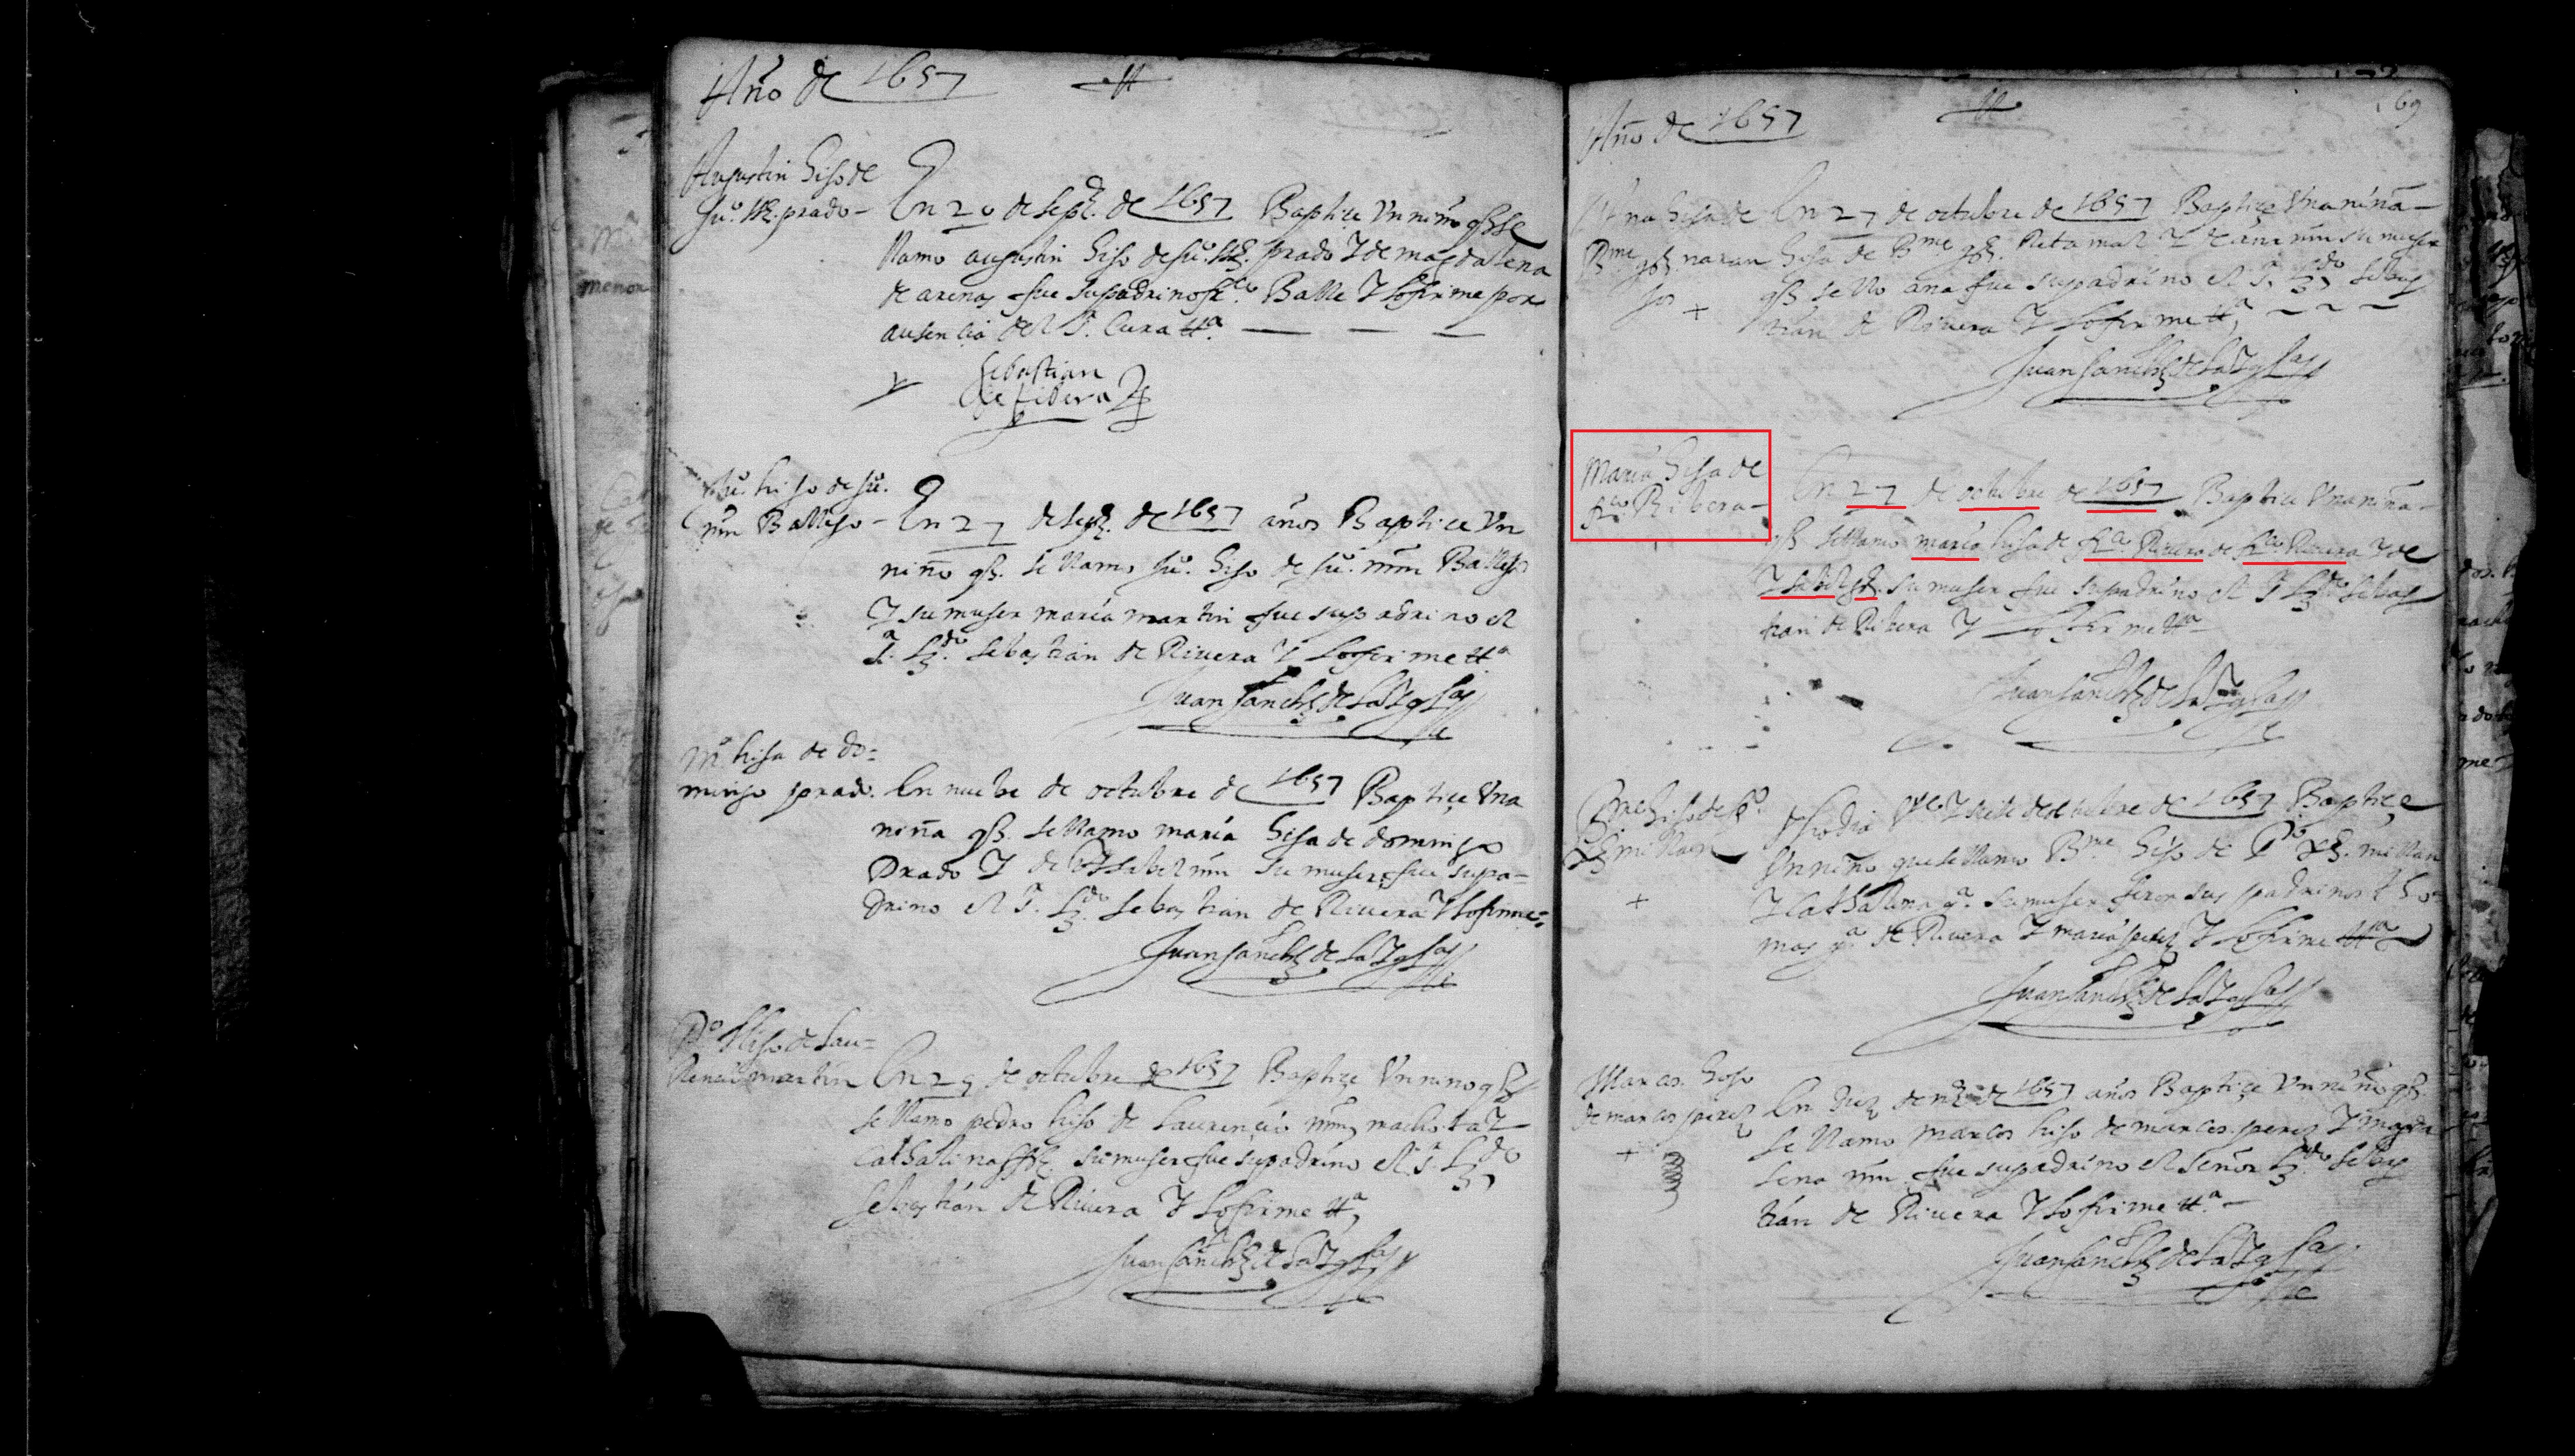 Año de 1657
Augustin hijo de
Juº. prado -
En 20 de sepe. de 1657 Baptiçe Vn niño q se
llamo augustin hijo de Juº. prado Y de magdalena
de arenas fue su padrino frco. Balle Y lo firme por
ausencia del Sr. Cura Ut ª
Sebastian
de ribera
Juº. hijo de Juº.
mrn Balleso -
En 27 de sepe. de 1657 años Baptiçe Vn
niño q. se llamo Juº. hijo de Juº. mrn
Y su muger maria martin fue su padrino el
Sr. Ldo. sebastian de Riuera Y lo firme Ut ª
Juan sanchez de la Yglª
Mª hija de do=
mingo prado.
En nuebe de octubre de 1657 Baptiçe Vna
niña q. se llamo maria hija de domingo
Prado Y de Ysabel mrn su muger fue su pa=
drino el Sr. Ldo. sebastian de Riuera Y lo firme=
Juan sanchez de la Yglª
Pº hijo de Lau=
rencio martin
En 25 de octubre de 1657 Baptiçe Vn nino q
se llamo pedro hijo de Laurençio mrn
Cathalina su muger fue su padrino el Sr. Ldo
sebastian de Riuera Y lo firme Ut ª
Juan sanchez de la Yglª
69
Año de 1657
Ana hija de
Bme naran
jo
En 27 de octubre de 1657 Baptiçe Vna niña -
hija de Bme Retamal Y de ana mrn su muger
q se llo ana fue su padrino el Sr. Ldo sebas
tian de Riuera Y lo firme Ut ª
Juan sanchez de la Yglª
Maria hija de
frco. Ribera -
En 27 de octubre de 1657 Baptiçe Vna niña -
q se llamo maria hija de frco. Riuera de frco. Riuera Y de
Ysabel su muger fue su padrino el Sr Ldo sebas
tian de Ribera Y lo firme Ut ª
Juan sanchez de la Yglª
Bme hijo de Pº
millan
dho dia Vte Y siete de octubre de 1657 Baptiçe
Vn niño que se llamo Bme hijo de Pº millan
Y Cathalina gª. su muger fueron sus padrinos tho=
mas gª de Riuera Y maria perez Y lo firme Ut ª
Juan sanchez de la Yglª
Marcos hijo
de marcos perez
En diez de de 1657 años Baptiçe Vn niño q.
se llamo marcos hijo de marcos perez Y magda
lena mrn fue su padrino el señor Ldo. sebas
tian de Riuera Y lo firme Ut ª -
Juan sanchez de la Yglª